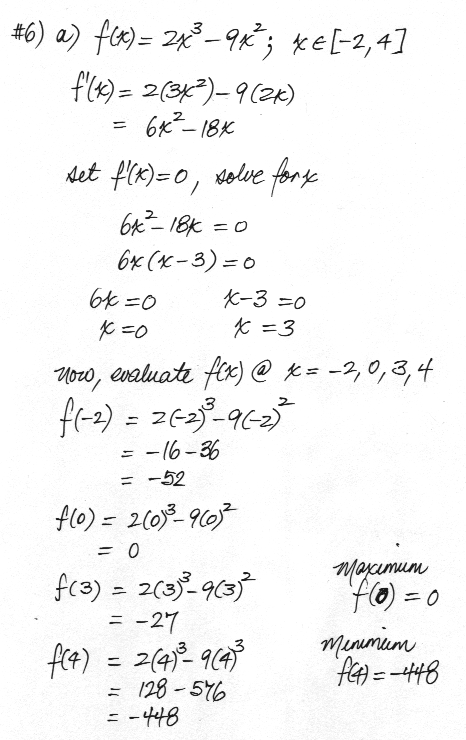 #6) a) f(x) = 2x³ – 9x²; x ∈ [-2, 4]
f'(x) = 2(3x²) – 9(2x)
= 6x² – 18x
set f'(x) = 0, solve for x
6x² – 18x = 0
6x(x – 3) = 0
6x = 0   x – 3 = 0
x = 0   x = 3
Now, evaluate f(x) @ x = -2, 0, 3, 4
f(-2) = 2(-2)³ – 9(-2)²
= -16 – 36
= -52
f(0) = 2(0)³ – 9(0)²
= 0
f(3) = 2(3)³ – 9(3)²
= -27
f(4) = 2(4)³ – 9(4)³
= 128 – 576
= -448
Maximum
f(0) = 0
Minimum
f(4) = -448